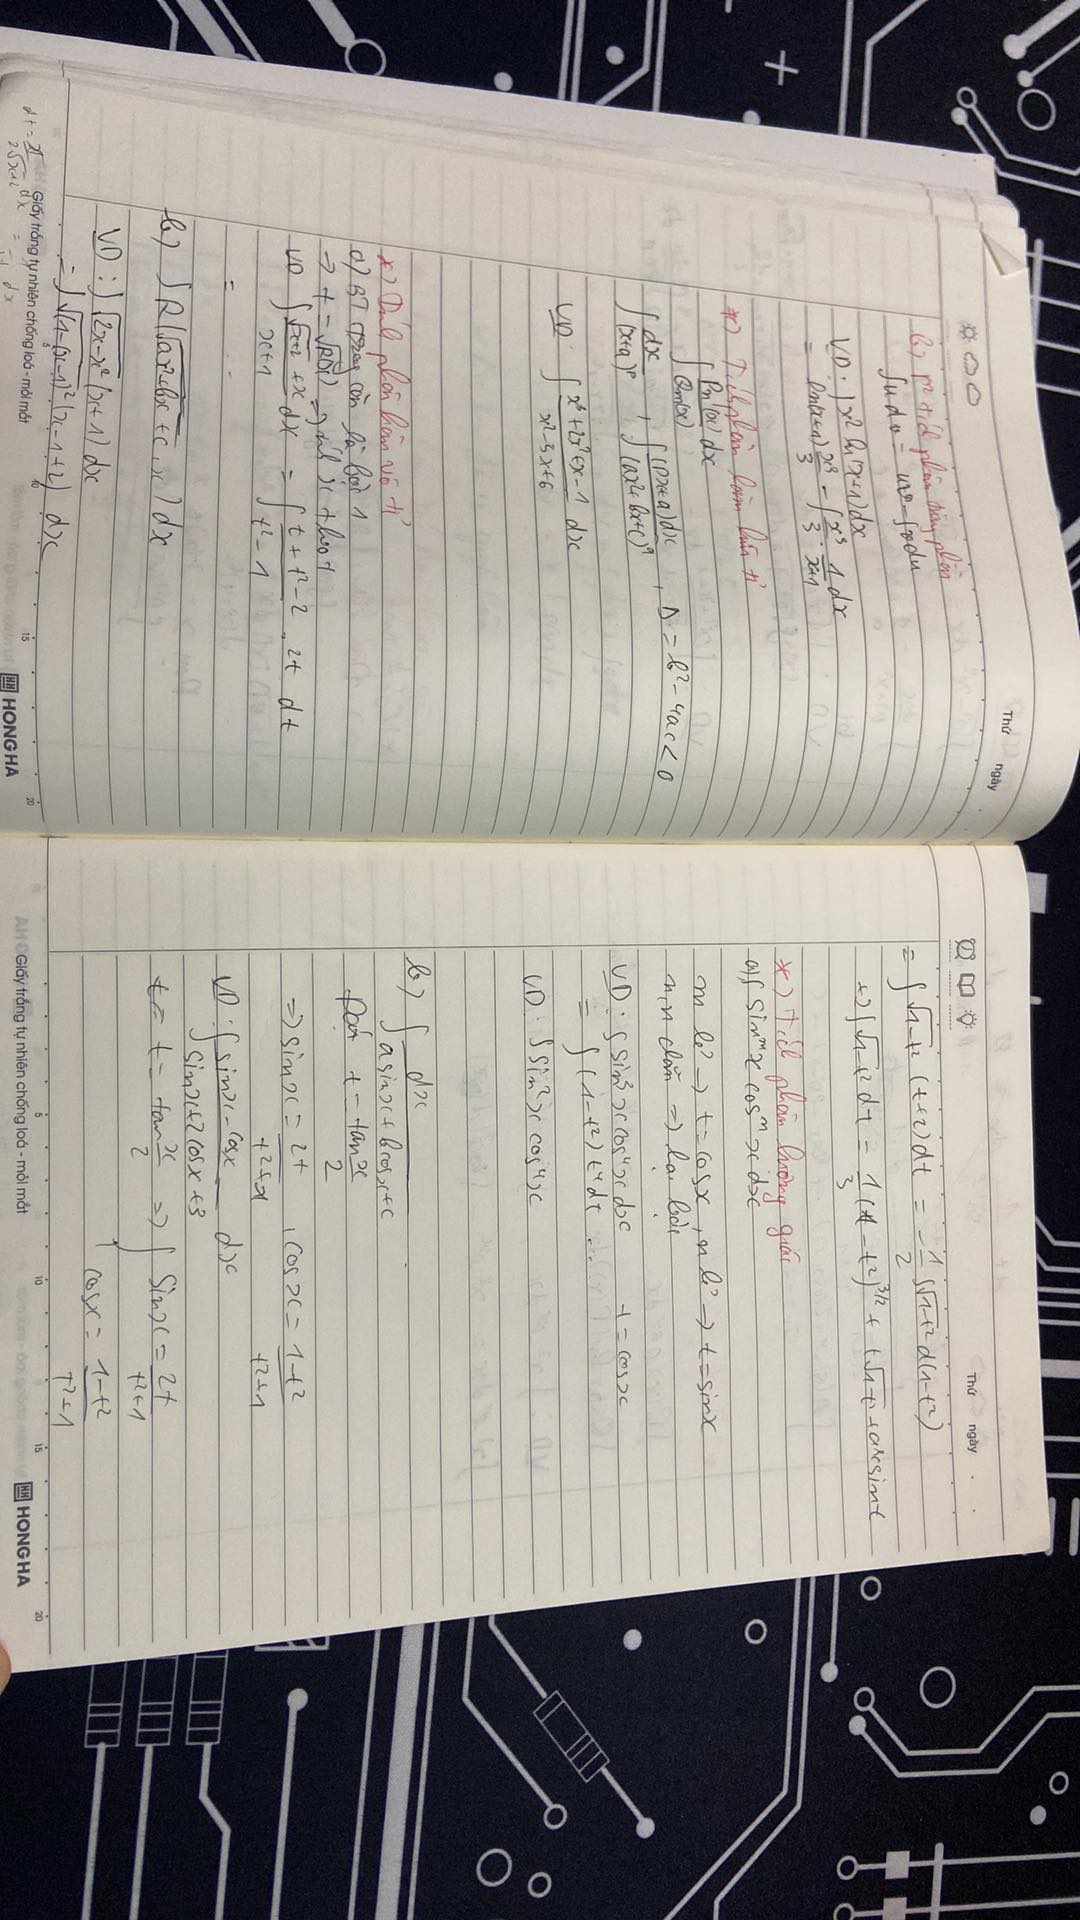 Thứ
ngày
b) p² tích phân từng phần
∫u dv = uv - ∫v du
VD: ∫x² ln(x+1)dx
= ln(x+1) x³/3 - ∫ x³/3 · 1/x+1 dx
*) Tích phân hàm hữu tỉ
∫ Pn(x)/Qm(x) dx
∫ dx/(x+a)^p , ∫ (px+q)dx/(ax²+bx+c)^q , Δ = b² - 4ac < 0
VD: ∫ x³+2x²+x-1/x²-5x+6 dx
*) Tích phân hàm vô tỉ
a) BT trong căn là bậc 1
=> t = => tính x theo t
VD ∫ √x+2 + x/x+1 dx = ∫ t+t²-2/t²-1 . 2t dt
=
b) ∫R(√ax²+bx+c, x)dx
VD: ∫√2x-x² (x+1)dx
= ∫√1-(x-1)² (x-1+2) dx
Giấy trắng tự nhiên chống loá - mỏi mắt
10 15 20
HONG HA
Thứ
ngày
= ∫√1-t² (t+2)dt = -1/2 ∫√1-t² d(1-t²)
+2∫√1-t² dt = 1/3 (1-t²)^3/2 + t√1-t² + arcsint
*) Tích phân lượng giác
a) ∫sin^m x cos^n x dx
m lẻ => t = cosx, n lẻ => t = sinx
m,n chẵn => hạ bậc
VD: ∫sin³x cos⁴x dx t = cosx
= ∫(1-t²)t⁴dt
VD: ∫sin²x cos⁴x
b) ∫ dx/asinx+bcosx+c
Đặt t = tan x/2
=> sinx = 2t/t²+1 , cosx = 1-t²/t²+1
VD: ∫ sinx - cosx/sinx+2cosx+3 dx
t = tan x/2 => ∫ sinx = 2t/t²+1
cosx = 1-t²/t²+1
Giấy trắng tự nhiên chống loá - mỏi mắt
5 10 15 20
HONG HA